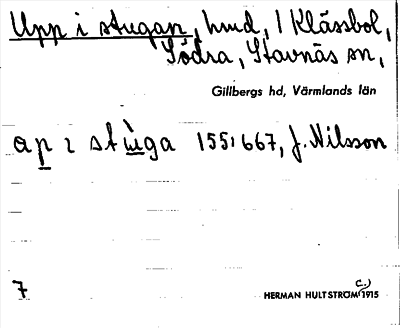 Upp i stugan, hmd, 1 Klässbol,
Södra, Stavnäs sn,
Gillbergs hd, Värmlands län
ap ı stùga 155:667, J. Nilsson
7
HERMAN HULTSTRÖM (c.) 1915